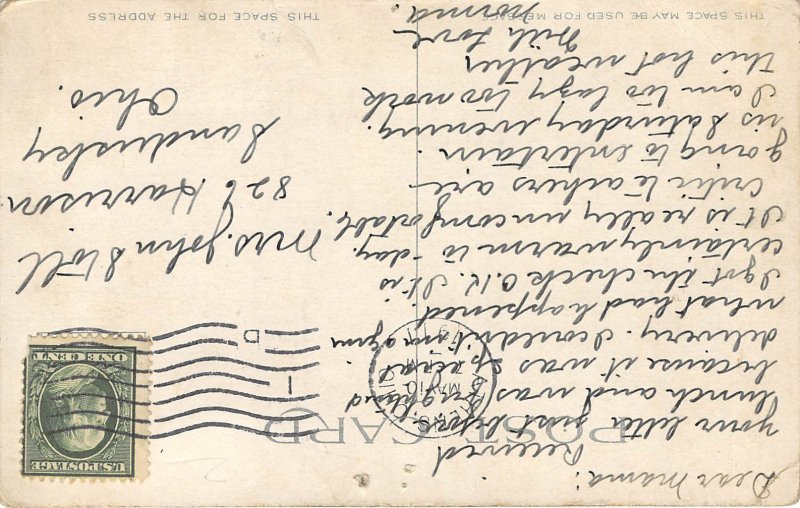 THIS SPACE MAY BE USED FOR MESSAGE
THIS SPACE FOR THE ADDRESS
POST CARD
Dear Mama:
Received
your letter just before
lunch and was frightened
because it was special
delivery. I couldn't imagine
what had happened.
I got the check O.K. It is
certainly warm to-day.
It is really uncomfortable.
Critic teachers are
going to entertain
us Saturday evening.
I am too lazy to work
this hot weather.
With love
Norma.
Mrs. John Stoll
826 Harrison
Sandusky
Ohio.
MAY 10
1911
D
1
U.S. POSTAGE
ONE CENT